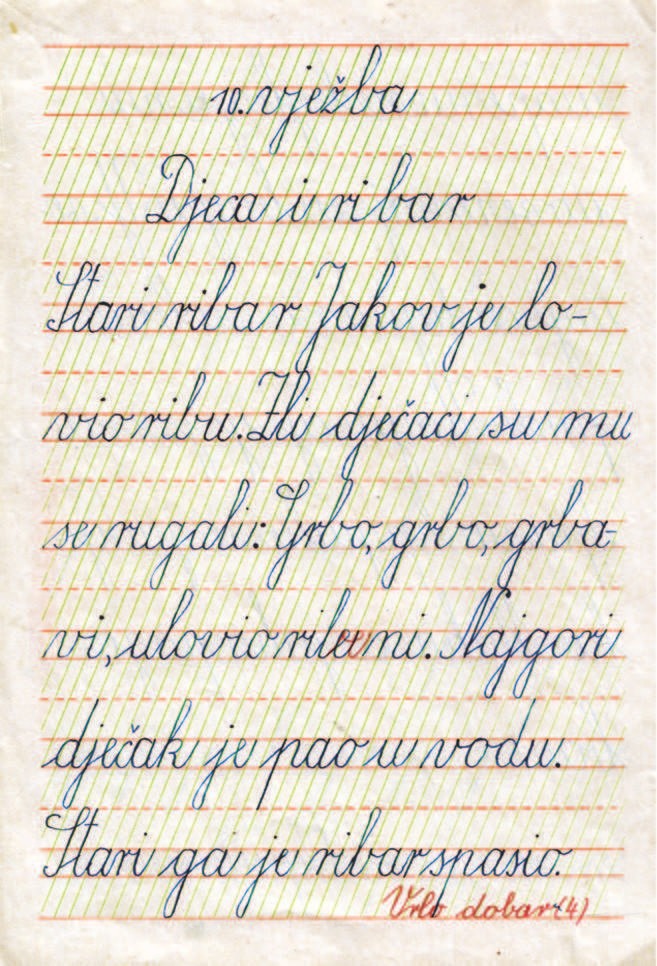 10. vježba
Djeca i ribar
Stari ribar Jakov je lo-
vio ribu. Zli dječaci su mu
se rugali: Grbo, grbo, grba-
vi, ulovio ribe ni. Najgori
dječak je pao u vodu.
Stari ga je ribar spasio.
Vrlo dobar (4)